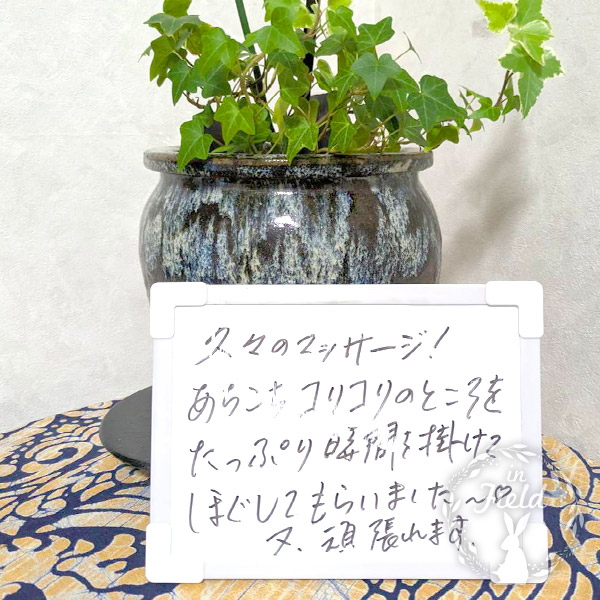 久々のマッサージ!
あちこちコリコリのところを
たっぷり時間を掛けて
ほぐしてもらいました〜♡
又、頑張れます。
in
Field